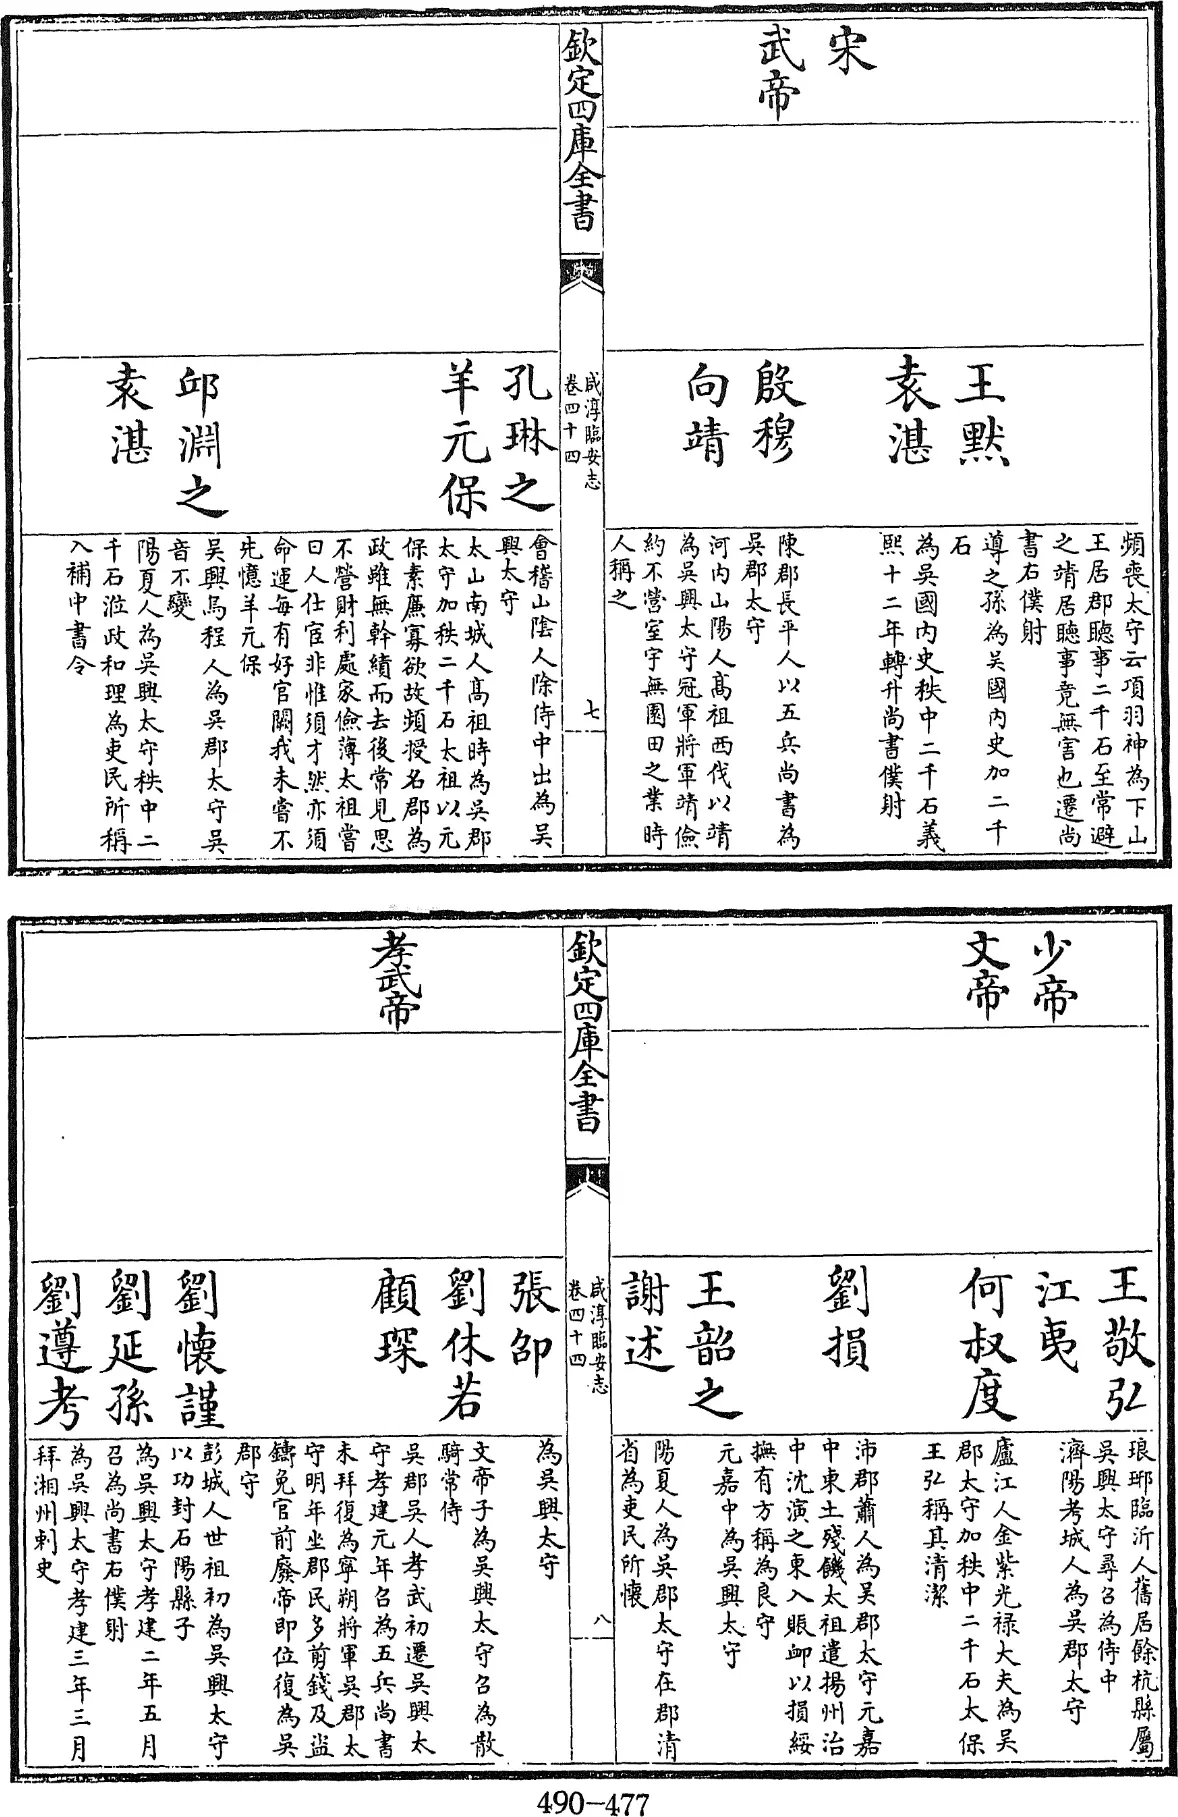 宋
武帝
王默
袁湛
殷穆
向靖
頻喪太守云項羽神為下山
王居郡聽事二千石至常避
之靖居聽事竟無害也遷尚
書右僕射
導之孫為吳國內史加二千
石
為吳國內史秩中二千石義
熙十二年轉升尚書僕射
陳郡長平人以五兵尚書為
吳郡太守
河內山陽人髙祖西伐以靖
為吳興太守冠軍將軍靖儉
約不營室宇無園田之業時
人稱之
欽定四庫全書
咸淳臨安志
卷四十四
七
孔琳之
羊元保
邱淵之
袁湛
會稽山陰人除侍中出為吳
興太守
太山南城人髙祖時為吳郡
太守加秩二千石太祖以元
保素廉寡欲故頻授名郡為
政雖無幹績而去後常見思
不營財利處家儉薄太祖嘗
曰人仕宦非惟須才然亦須
命運每有好官闕我未嘗不
先憶羊元保
吳興烏程人為吳郡太守吳
音不變
陽夏人為吳興太守秩中二
千石涖政和理為吏民所稱
入補中書令
少帝
文帝
王敬弘
江夷
何叔度
劉損
王韶之
謝述
琅琊臨沂人舊居餘杭縣屬
吳興太守尋召為侍中
濟陽考城人為吳郡太守
廬江人金紫光禄大夫為吳
郡太守加秩中二千石太保
王弘稱其清潔
沛郡蕭人為吳郡太守元嘉
中東土殘饑太祖遣揚州治
中沈演之東入賑䘏以損綏
撫有方稱為良守
元嘉中為吳興太守
陽夏人為吳郡太守在郡清
省為吏民所懷
欽定四庫全書
咸淳臨安志
卷四十四
八
孝武帝
張卲
劉休若
顧琛
劉懷謹
劉延孫
劉遵考
為吳興太守
文帝子為吳興太守召為散
騎常侍
吳郡吳人孝武初遷吳興太
守孝建元年召為五兵尚書
未拜復為寧朔將軍吳郡太
守明年坐郡民多剪錢及盜
鑄免官前廢帝即位復為吳
郡守
彭城人世祖初為吳興太守
以功封石陽縣子
為吳興太守孝建二年五月
召為尚書右僕射
為吳興太守孝建三年三月
拜湘州刺史
490-477